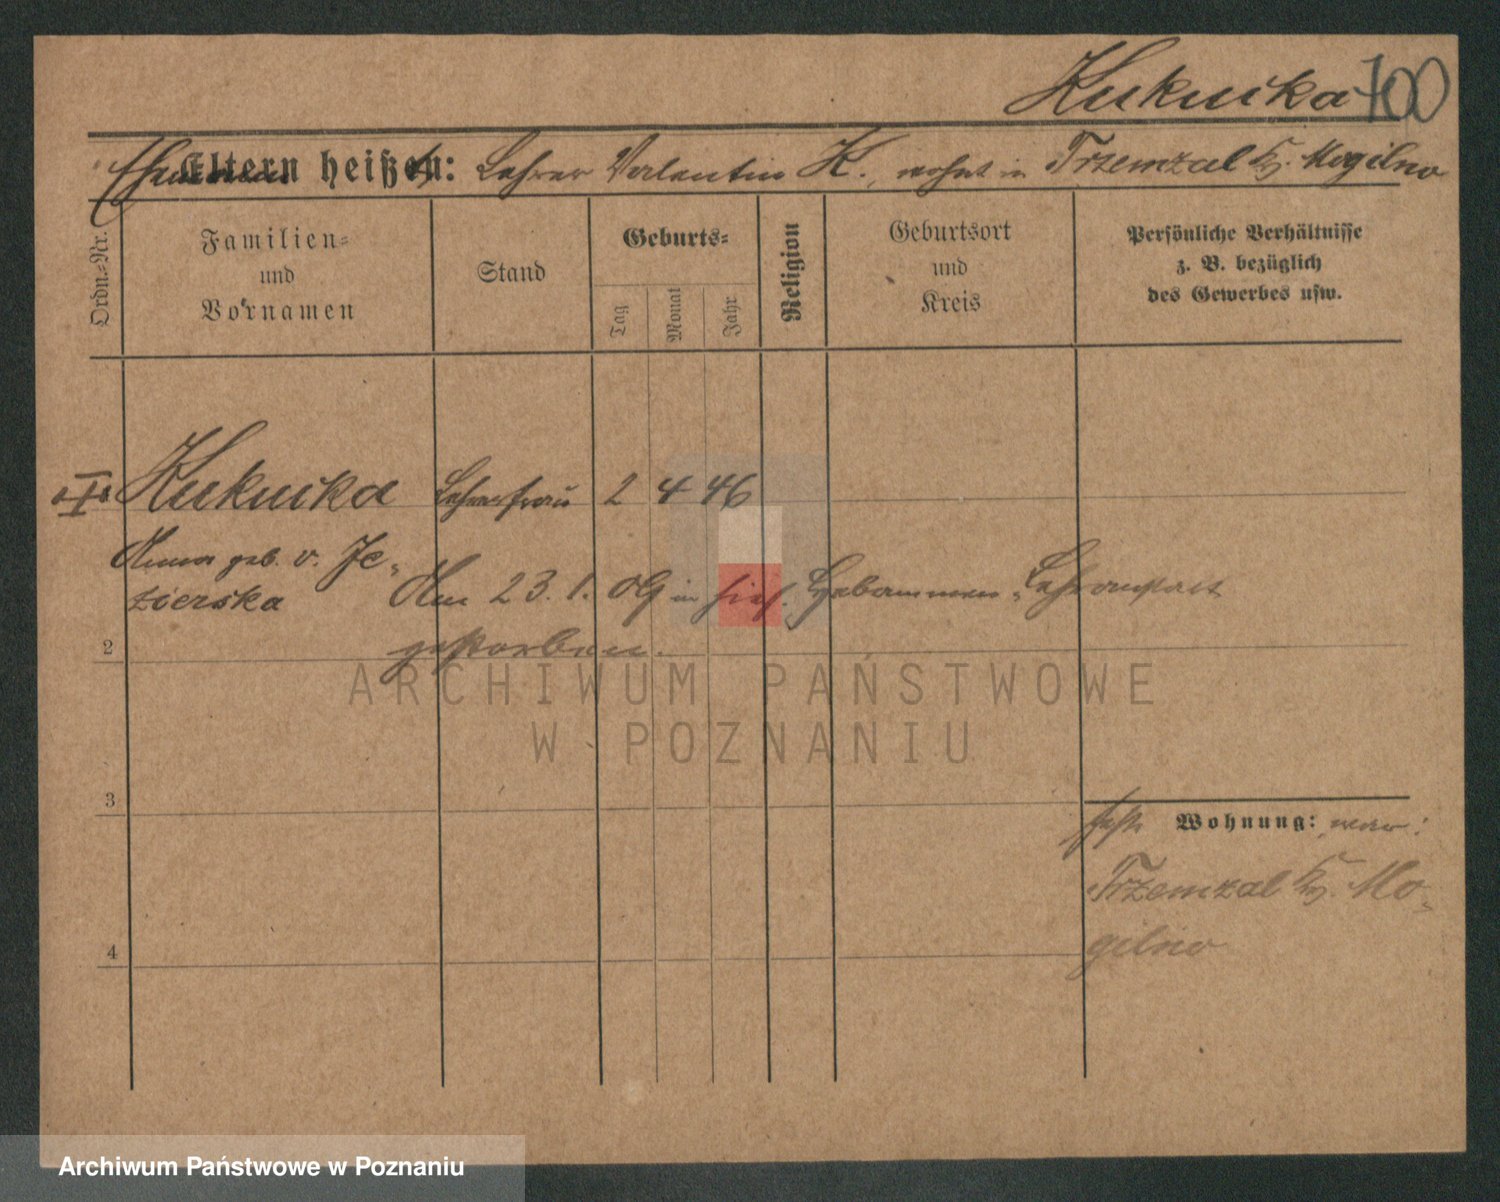 Kukucka 700
Ehemann Eltern heißen: Lehrer Valentin K., wohnt in Trzemzal Kr. Mogilno
Ordn.-Nr.
Familien-
und
Vornamen
Stand
Geburts-
Tag
Monat
Jahr
Religion
Geburtsort
und
Kreis
Persönliche Verhältnisse
z. B. bezüglich
des Gewerbes usw.
Kukucka Lehrerfrau 2 4 46
Anna geb. v. Je-
zierska Am 23. 1. 09 in hies. Hebammen-Lehranstalt
gestorben.
2
3
4
Wohnung: war:
Trzemzal Kr. Mo-
gilno
ARCHIWUM PAŃSTWOWE
W POZNANIU
Archiwum Państwowe w Poznaniu